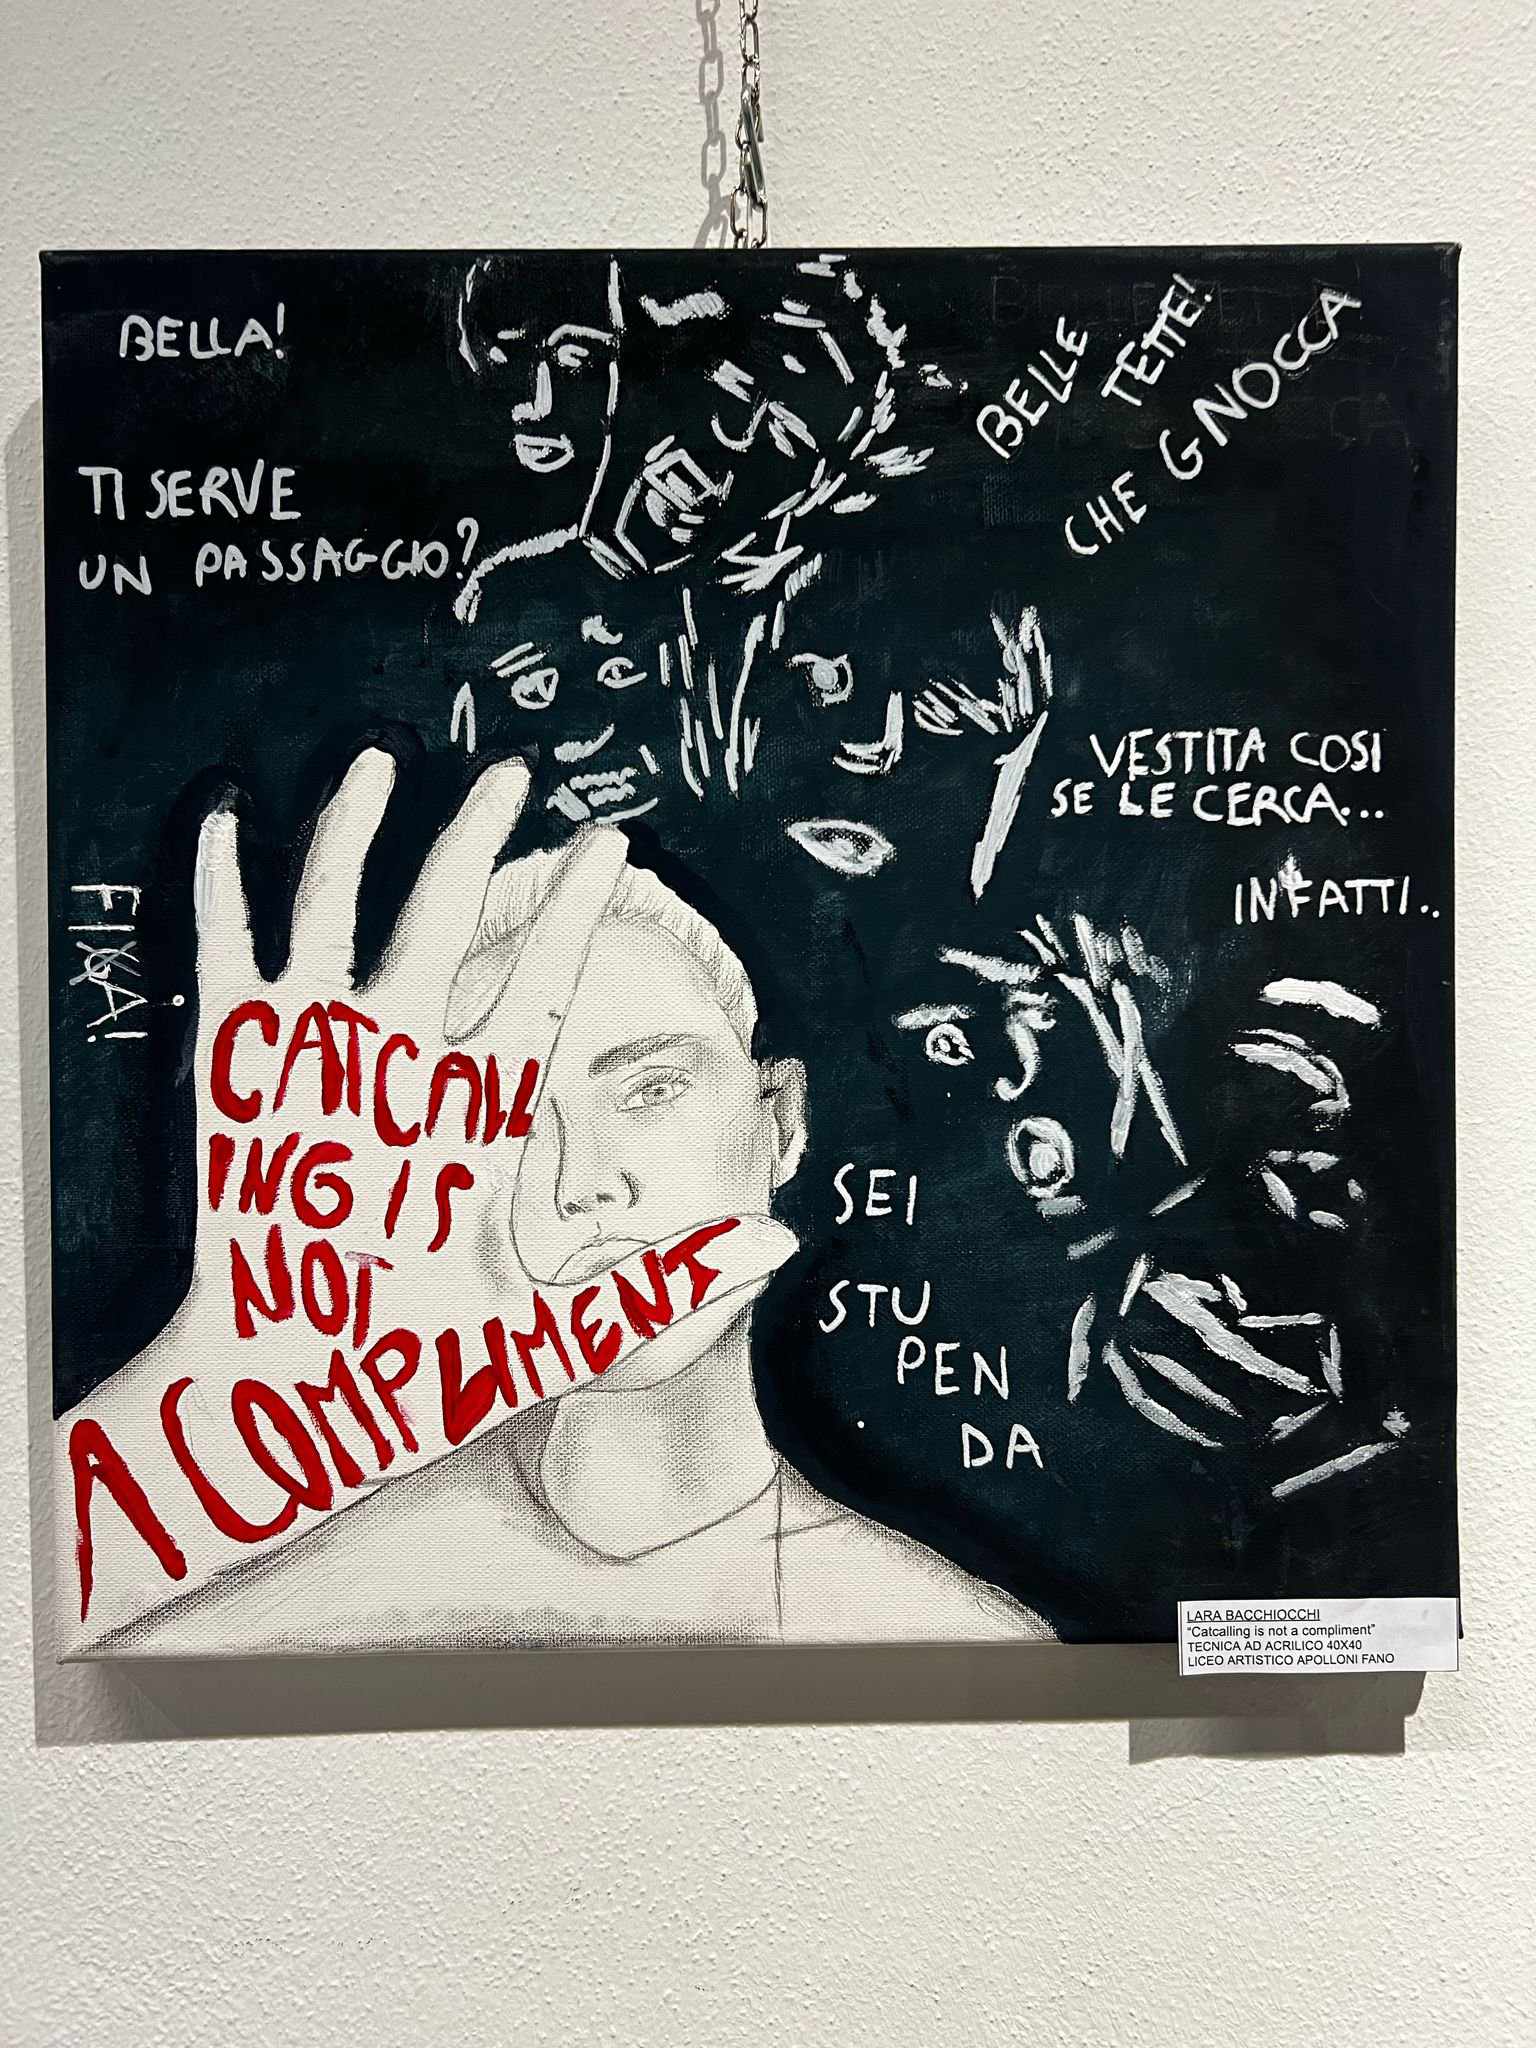 BELLA!
TI SERVE
UN PASSAGGIO?
BELLE
TETTE!
CHE GNOCCA
VESTITA COSI
SE LE CERCA...
INFATTI..
FIGA!
CATCALL
ING IS
NOT
A COMPLIMENT
SEI
STU
PEN
DA
LARA BACCHIOCCHI
"Catcalling is not a compliment"
TECNICA AD ACRILICO 40X40
LICEO ARTISTICO APOLLONI FANO